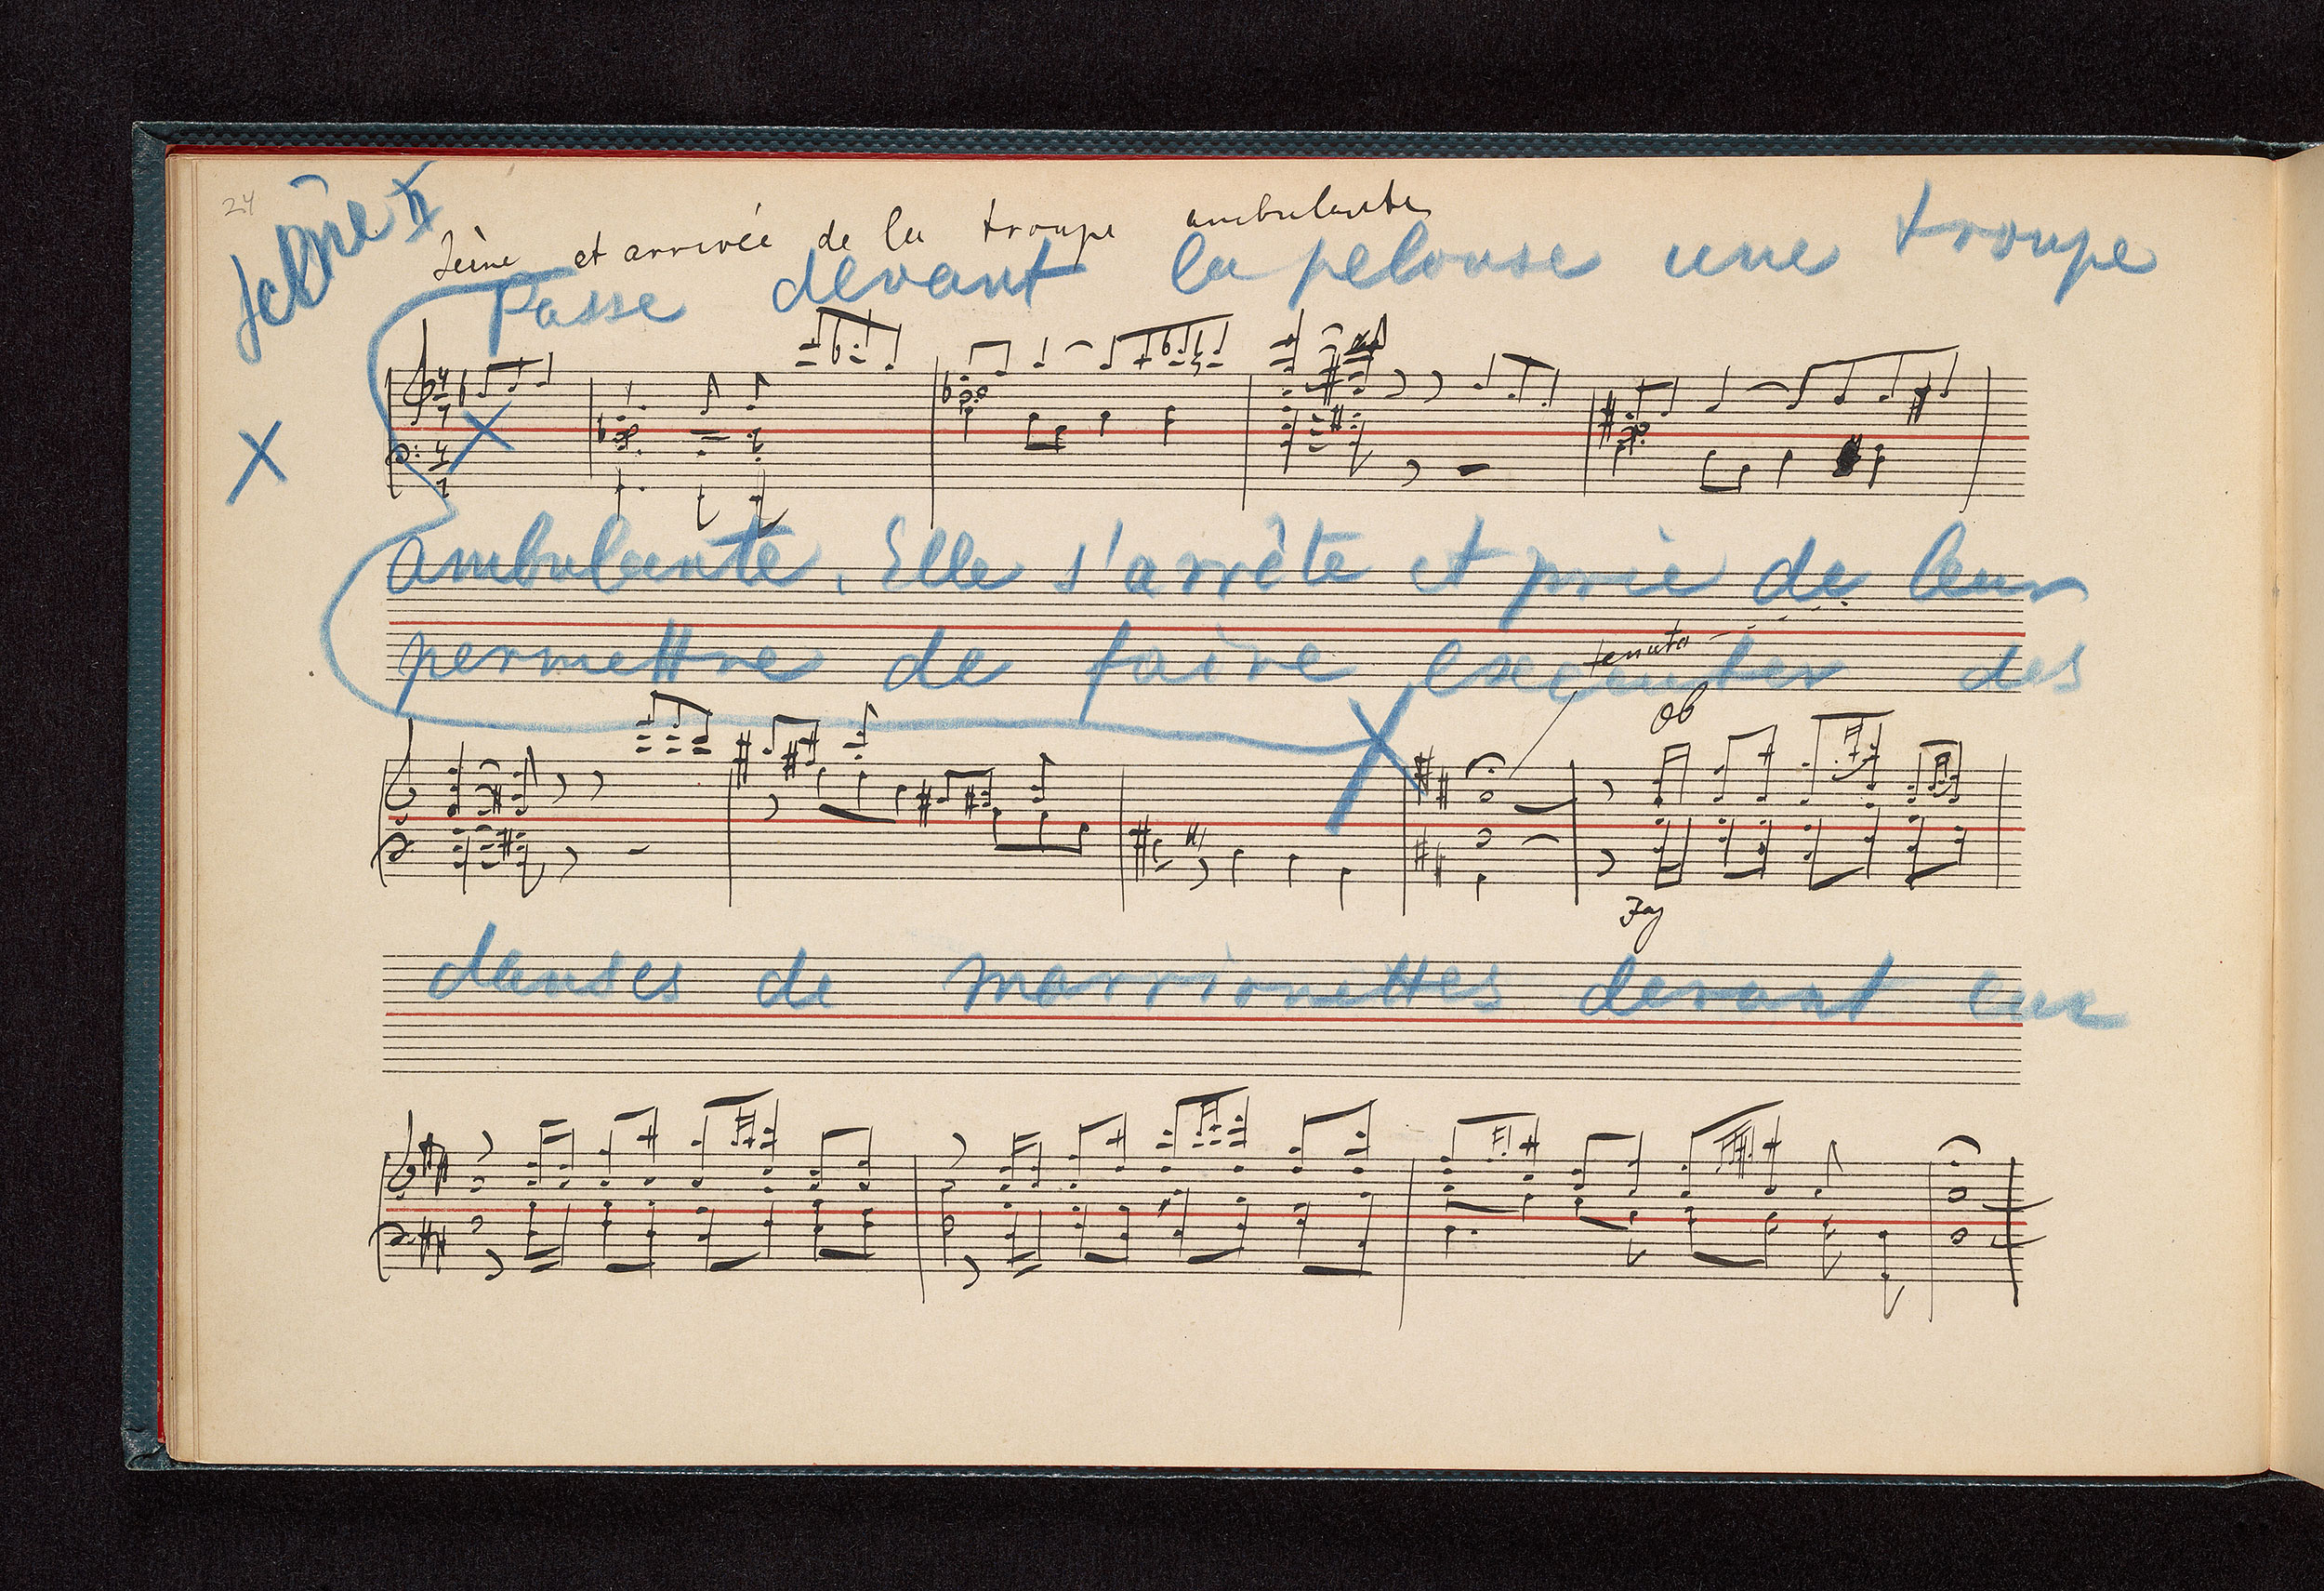 24
Scène II
Scène et arrivée de la troupe ambulante
Passe devant la pelouse une troupe
ambulante. Elle s'arrête et prie de leur
permettre de faire exécuter des
tenuta
ob
Fag
danses de marrionettes devant eux